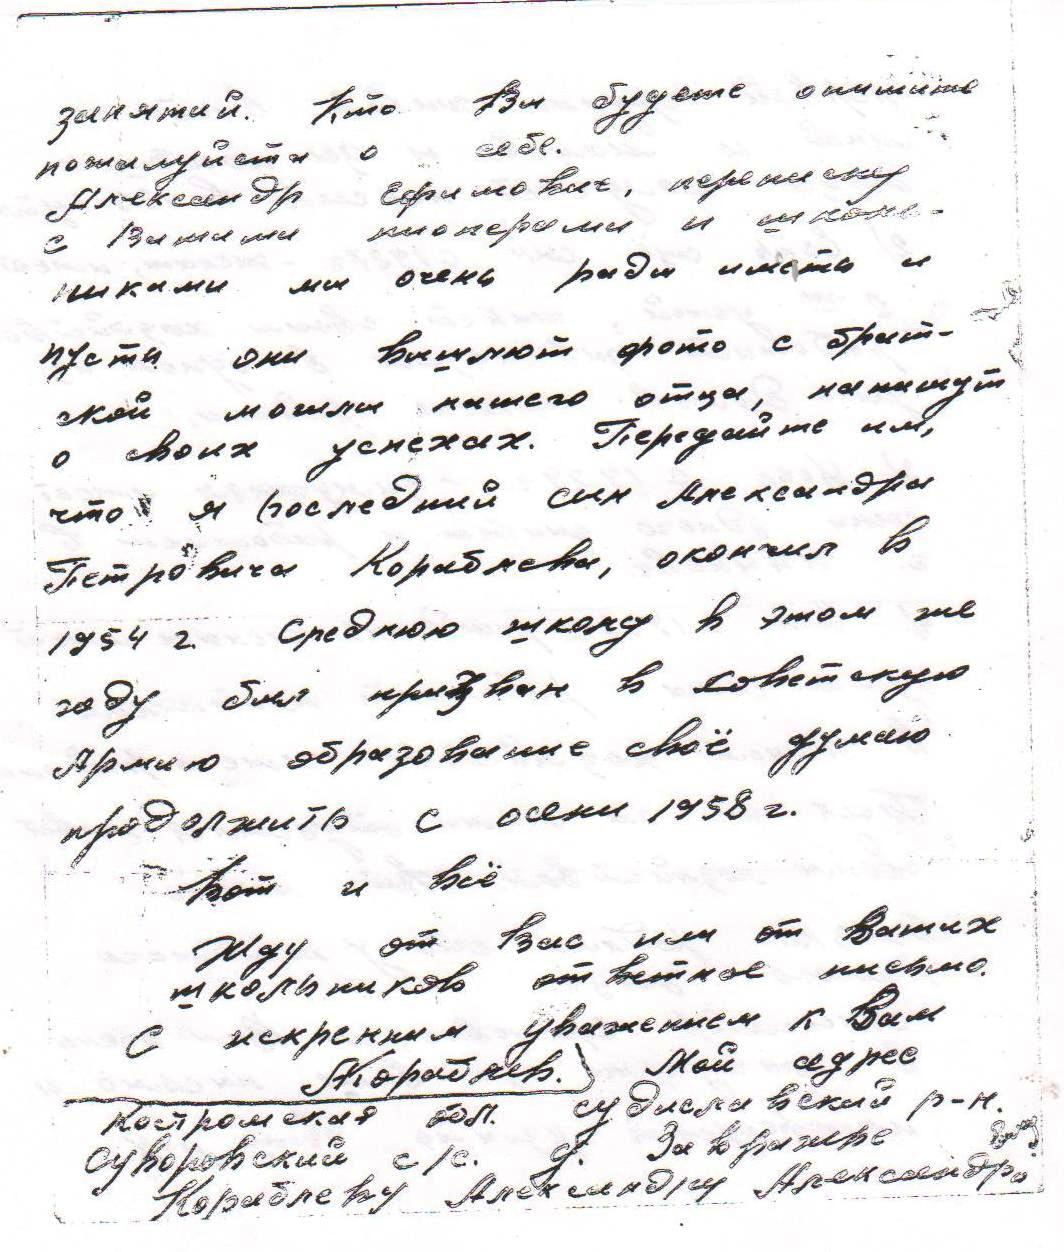 занятий. Кто Вы будете опишите
пожалуйста о себе.
Александр Ефимович, переписку
с Вашими пионерами и школь-
никами мы очень рады иметь и
пусть они вышлют фото с брат-
ской могилы нашего отца, напишут
о своих успехах. Передайте им,
что я последний сын Александра
Петровича Кораблева, окончил в
1954 г. Среднюю школу в этом же
году был призван в Советскую
Армию образование своё думаю
продолжить с осени 1958 г.
Вот и всё
Жду от Вас или от Ваших
школьников ответное письмо.
С искренным уважением к Вам
АКораблев. Мой адрес
Костромская обл. Судиславский р-н.
Суворовский с/с. д. Завражье
Кораблеву Александру Александро